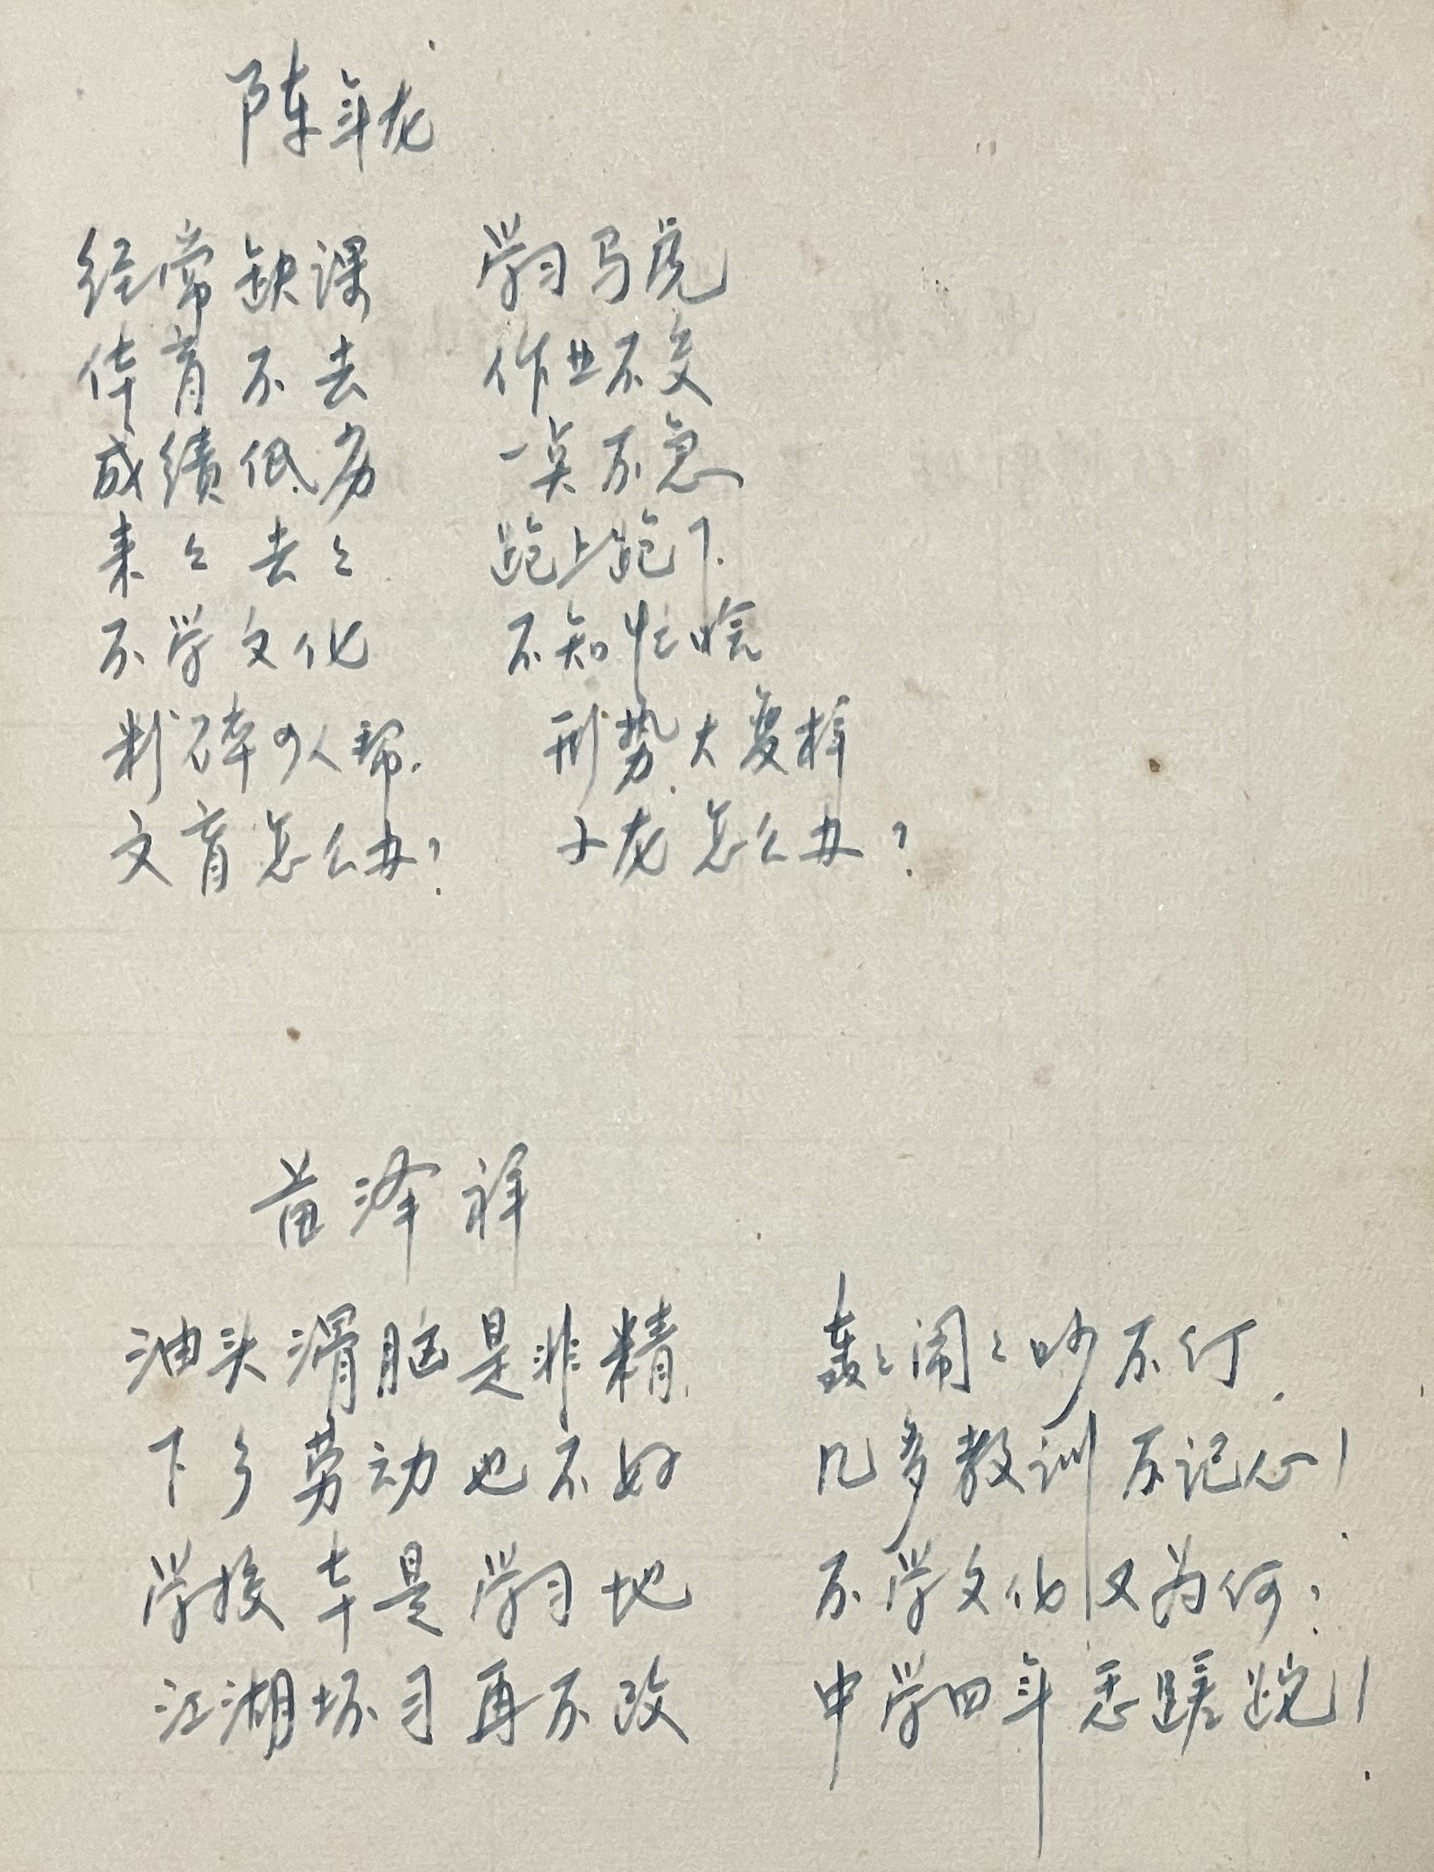 陈年龙
经常缺课 学习马虎
体育不去 作业不交
成绩低劣 一点不急
来々去々 跑上跑下.
不学文化 不知忙啥
粉碎四人帮. 形势大变样
文育怎么办? 小龙怎么办?
苗泽祥
油头滑脑是非精 轰々闹々吵不行.
下乡劳动也不好 几多教训不记心!
学校本是学习地 不学文化又为何?
江湖坏习再不改 中学四年悉蹉跎!